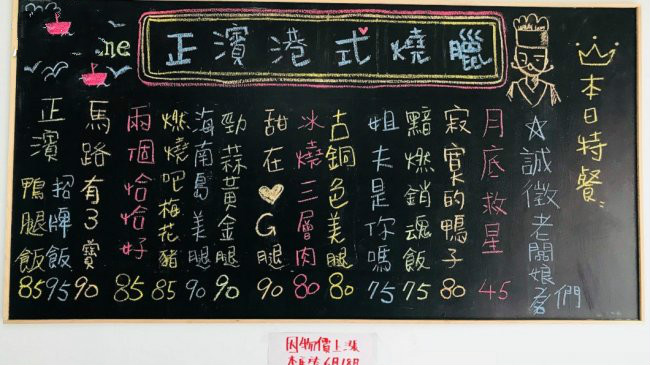 ne
正濱港式燒臘
本日特餐
☆誠徵老闆娘們
月底救星 45
寂寞的鴨子 80
黯燃銷魂飯 75
姐夫是你嗎 75
古銅色美腿 80
冰燒三層肉 80
甜在♡G腿 90
勁蒜黃金腿 90
海南島美腿 90
燃燒吧梅花豬 85
兩個恰恰好 85
馬路有3寶 90
正濱
招牌飯 95
鴨腿飯 85
因物價上漲